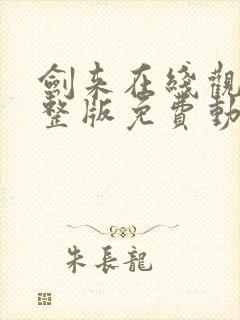 劍來在綫觀
整版免費動
朱長龍